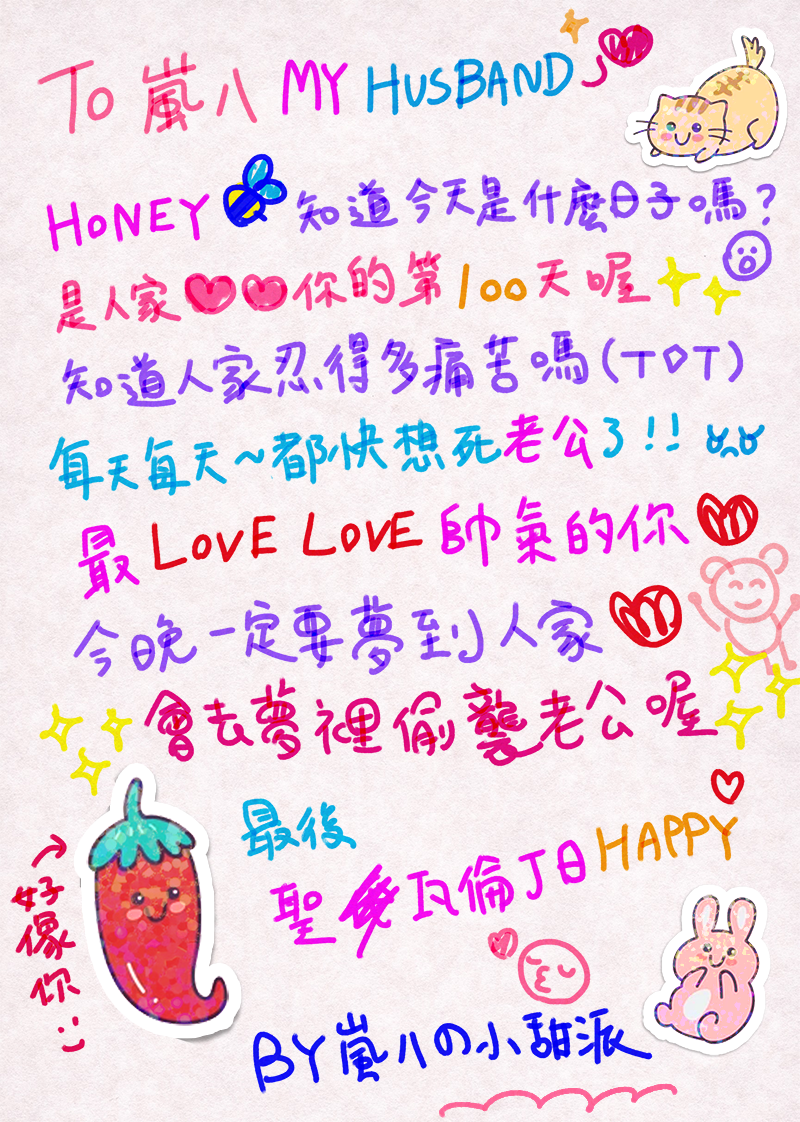 To 嵐八 MY HUSBAND
HONEY 知道今天是什麼日子嗎？
是人家你的第100天喔
知道人家忍得多痛苦嗎(TOT)
每天每天~都快想死老公了!!
最LOVE LOVE 帥氣的你
今晚一定要夢到人家
會去夢裡偷襲老公喔
最後
聖瓦倫丁日HAPPY
好像你
BY嵐八の小甜派